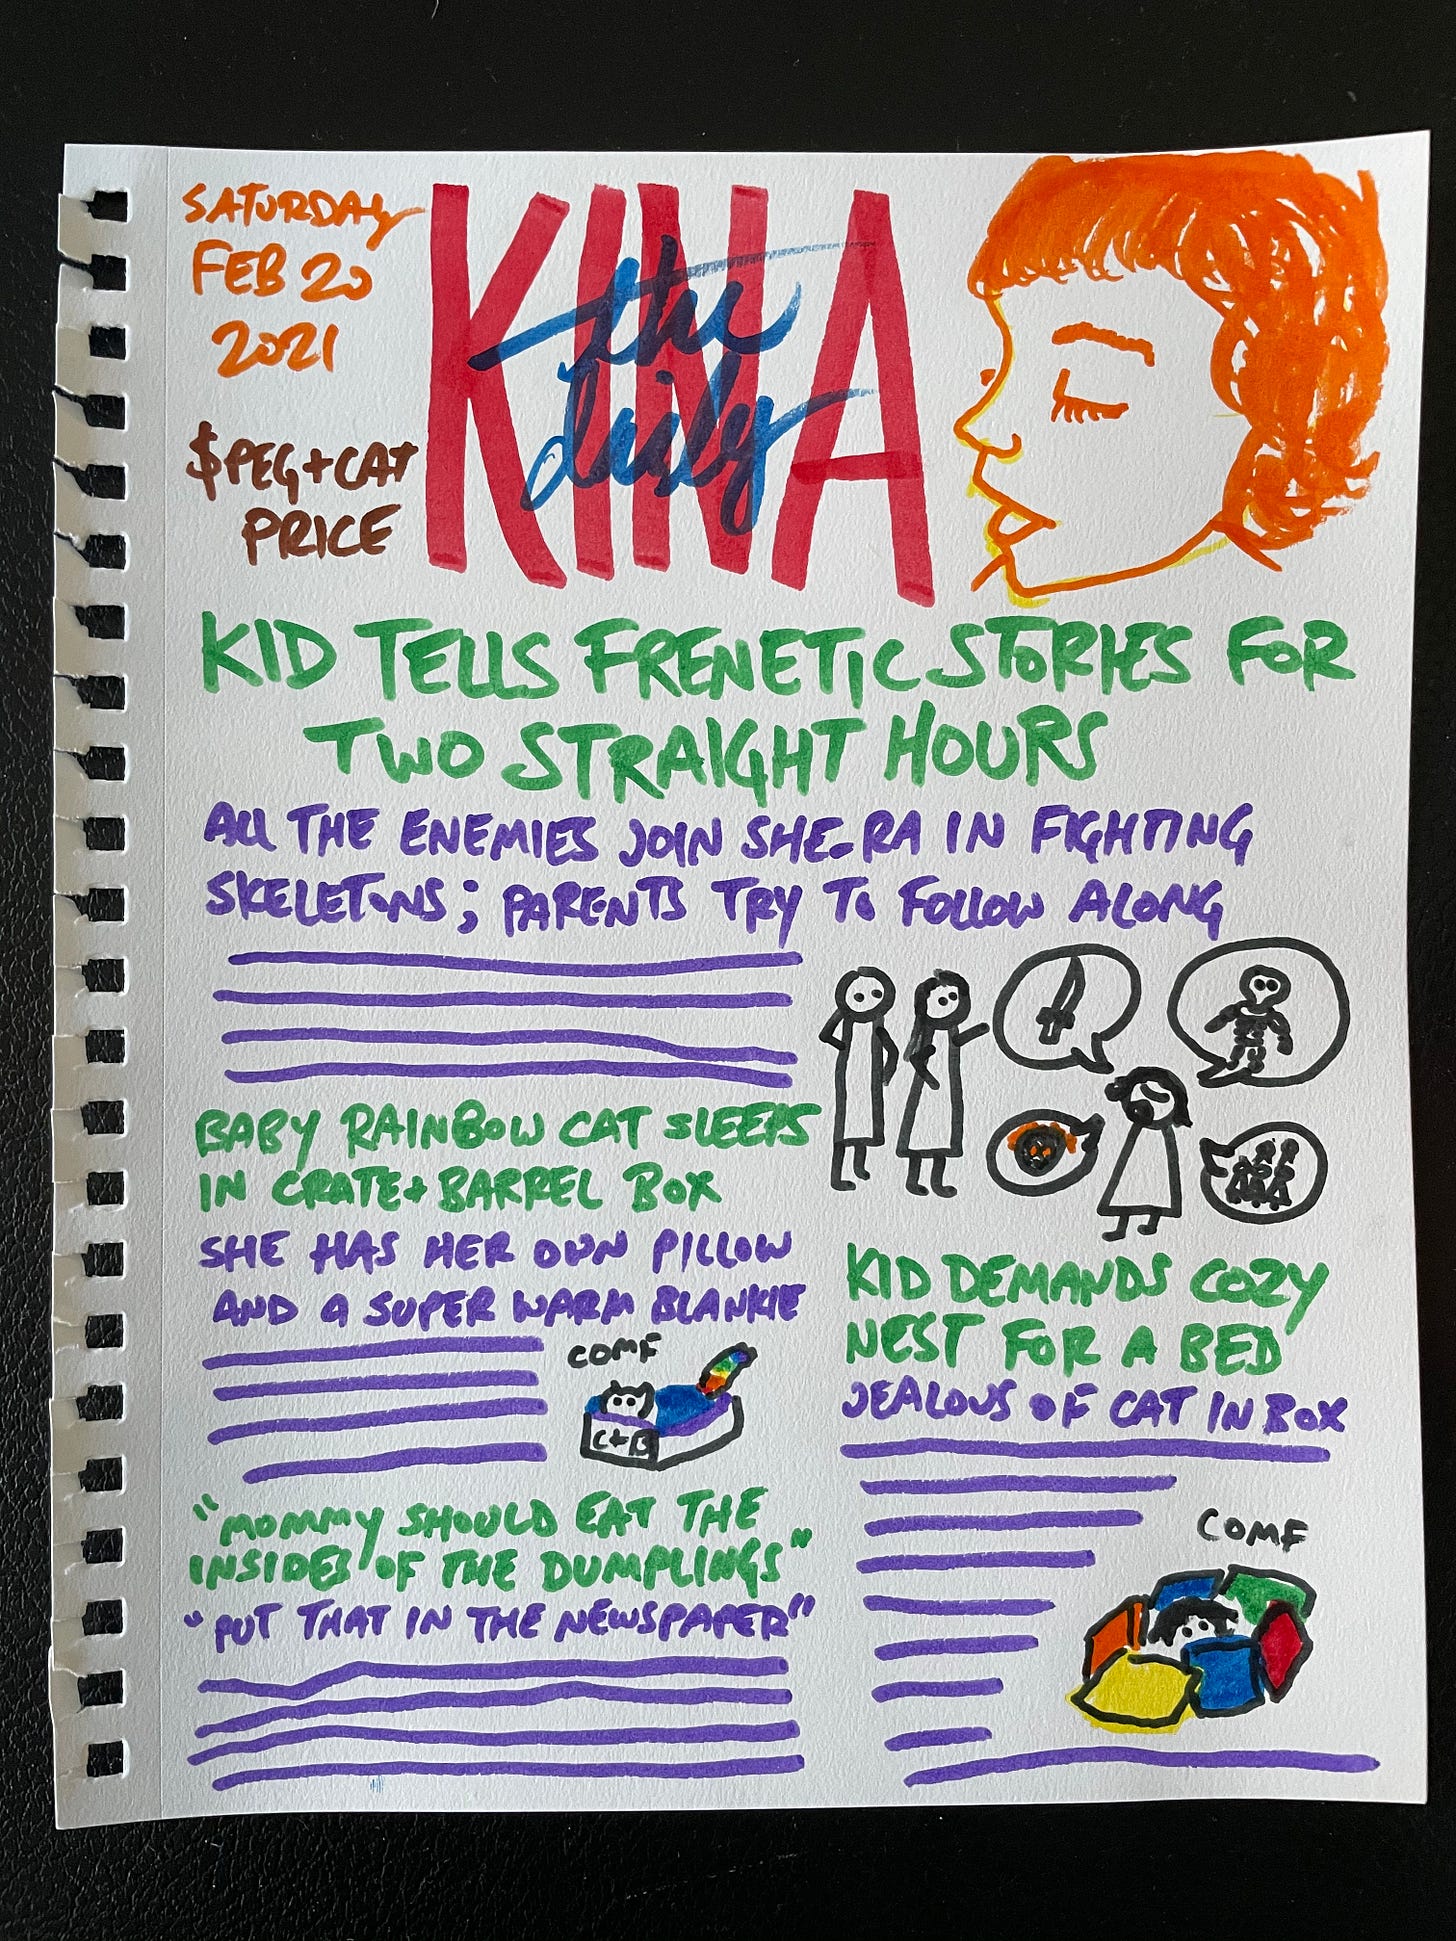 SATURDAY
FEB 20
2021
$PEG+CAT
PRICE
the
daily
KINA
KID TELLS FRENETIC STORIES FOR
TWO STRAIGHT HOURS
ALL THE ENEMIES JOIN SHE-RA IN FIGHTING
SKELETONS; PARENTS TRY TO FOLLOW ALONG
BABY RAINBOW CAT SLEEPS
IN CRATE+BARREL BOX
SHE HAS HER OWN PILLOW
AND A SUPER WARM BLANKIE
COMF
C+B
"MOMMY SHOULD EAT THE
INSIDES OF THE DUMPLINGS"
"PUT THAT IN THE NEWSPAPER"
KID DEMANDS COZY
NEST FOR A BED
JEALOUS OF CAT IN BOX
COMF